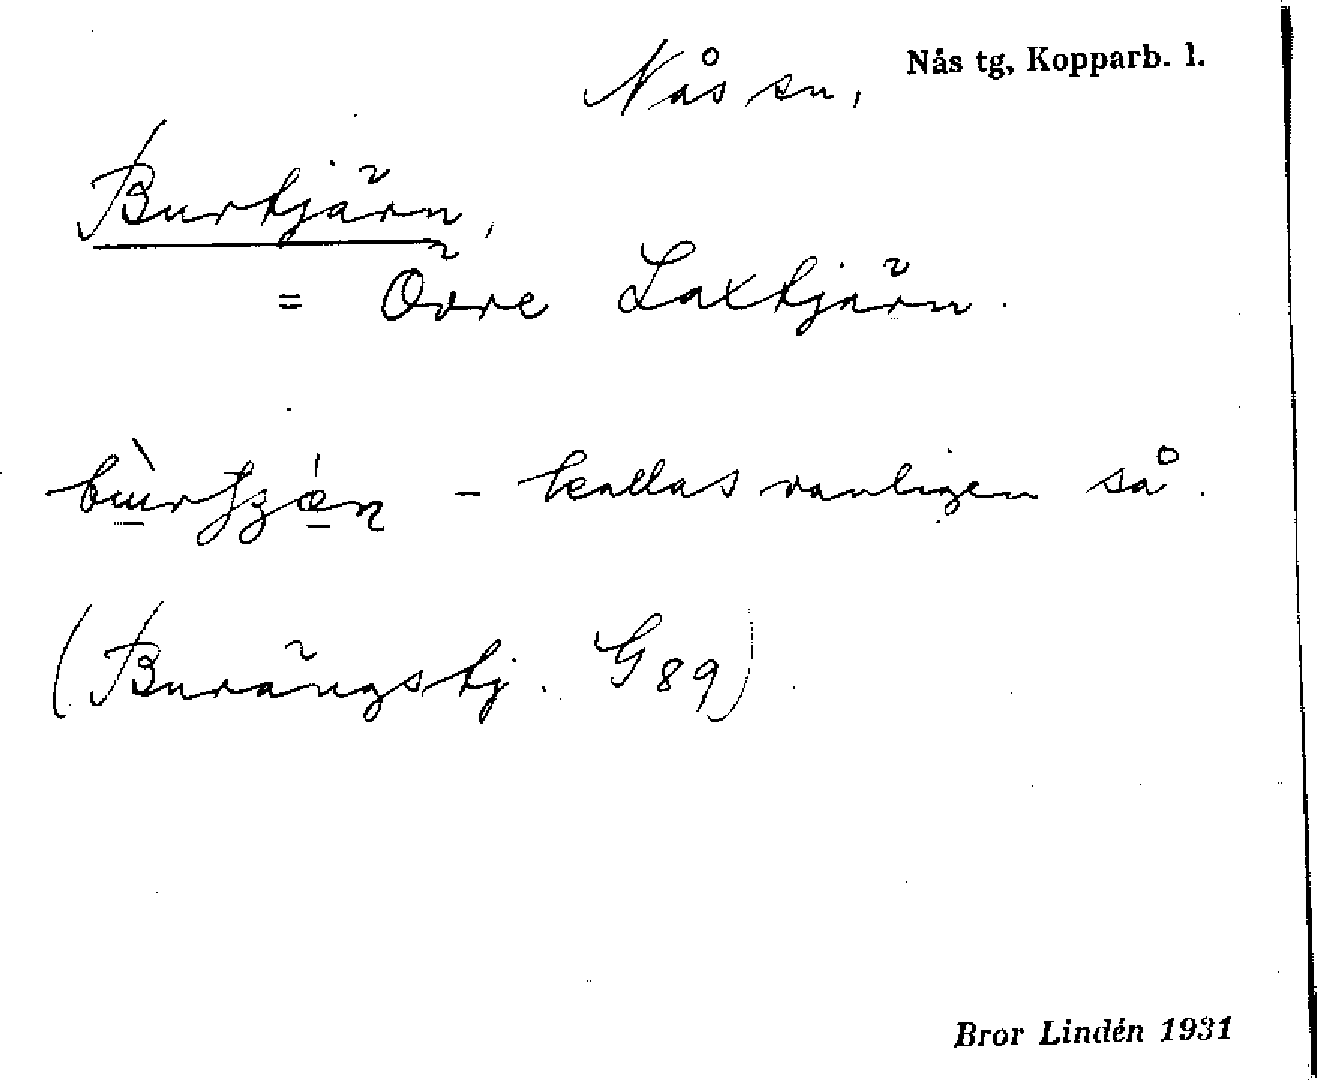 Nås sn, Nås tg, Kopparb. l.
Burtjärn,
= Övre Laxtjärn.
– kallas vanligen så.
(Burängstj. G 89)
Bror Lindén 1931